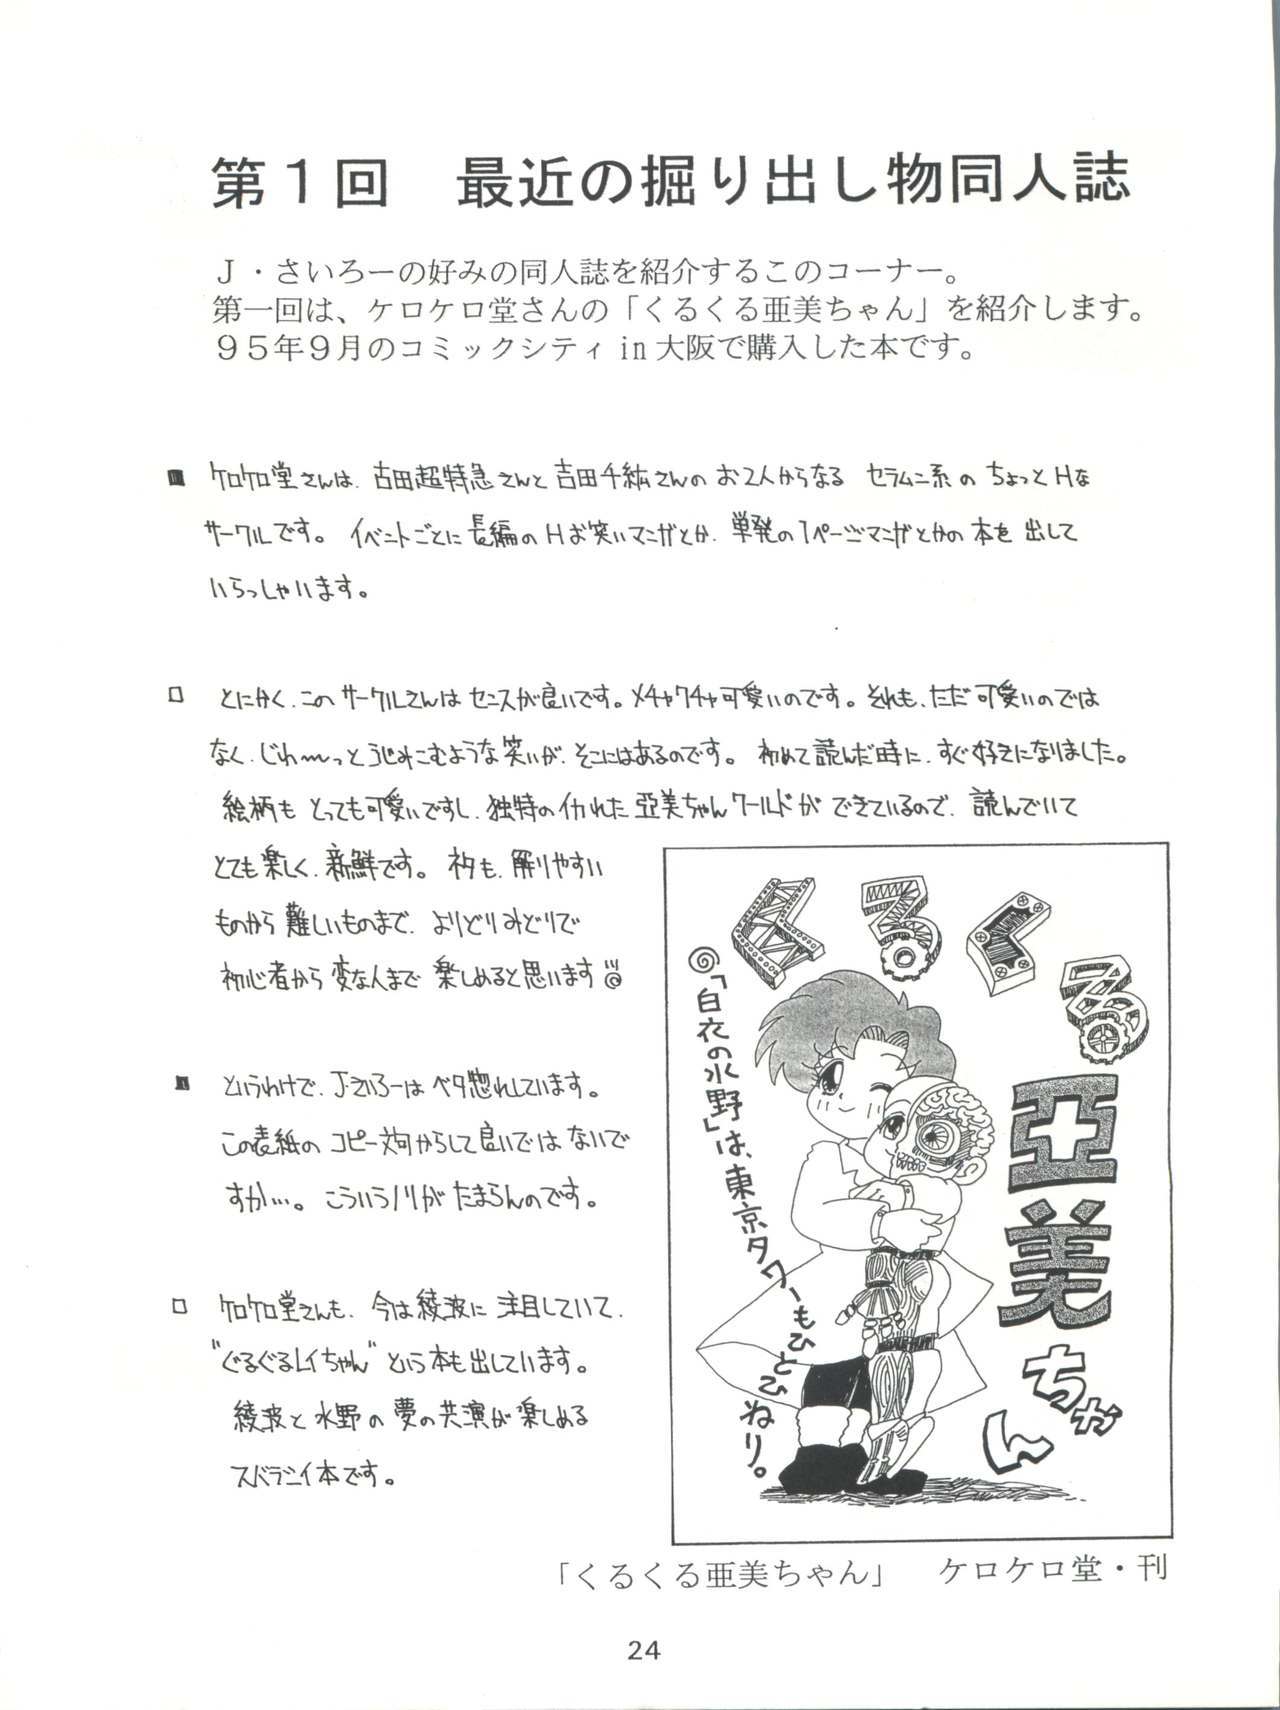 第１回　最近の掘り出し物同人誌
Ｊ・さいろーの好みの同人誌を紹介するこのコーナー。
第一回は、ケロケロ堂さんの「くるくる亜美ちゃん」を紹介します。
９５年９月のコミックシティ in 大阪で購入した本です。
■ ケロケロ堂さんは、古田超特急さんと吉田千紘さんのお2人からなる セラムン系の ちょっとHな
サークルです。 イベントごとに長編のHお笑いマンガとか、単発の1ページマンガとかの本を出して
いらっしゃいます。
□ とにかく、このサークルさんはセンスが良いです。メチャクチャ可愛いのです。それも、ただ可愛いのでは
なく、じわ〜っとうじみこむような笑いが、そこにはあるのです。 初めて読んだ時に、すぐ好きになりました。
絵柄もとっても可愛いですし、独特のイカれた亜美ちゃんワールドができているので、読んでいて
とても楽しく、新鮮です。 ネタも、解りやすい
ものから難しいものまで、よりどりみどりで
初心者から変な人まで楽しめると思います
■ というわけで、Jさいろーはベタ惚れしています。
この表紙のコピー文句からして良いではないで
すか…。 こういうノリがたまらんのです。
□ ケロケロ堂さんも、今は綾波に注目していて、
“ぐるぐるレイちゃん”という本も出しています。
綾波と水野の夢の共演が楽しめる
スバラシイ本です。
くるくる
亞美ちゃん
「白衣の水野」は、東京タワーもひとひねり。
「くるくる亜美ちゃん」　ケロケロ堂・刊
24